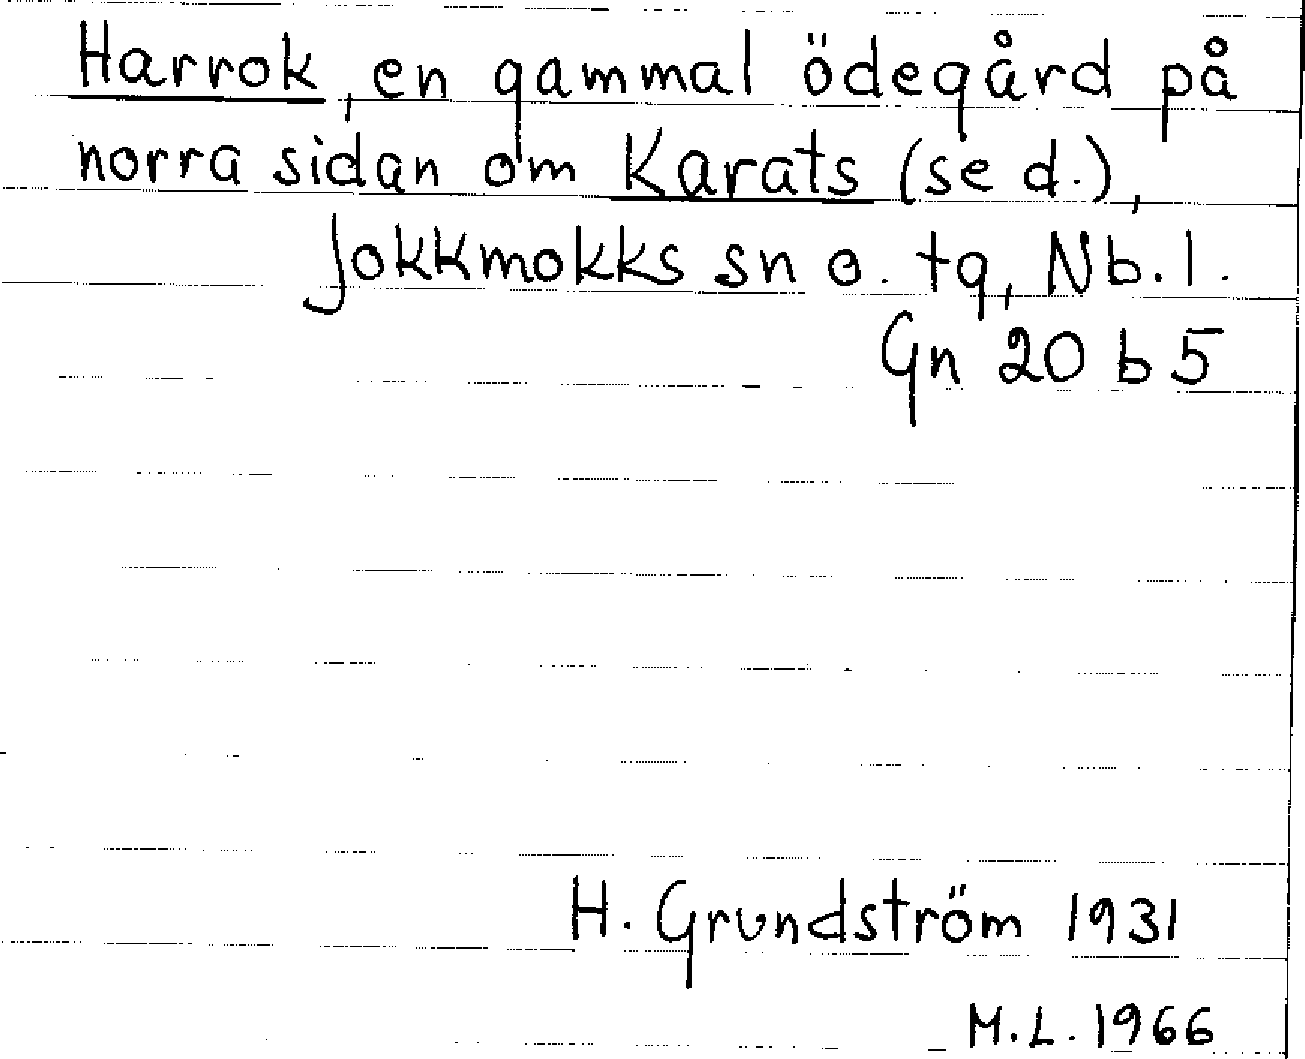 Harrok, en gammal ödegård på
norra sidan om Karats (se d.),
Jokkmokks sn o. tg, Nb. l.
Gn 20 b 5
H. Grundström 1931
M.L. 1966